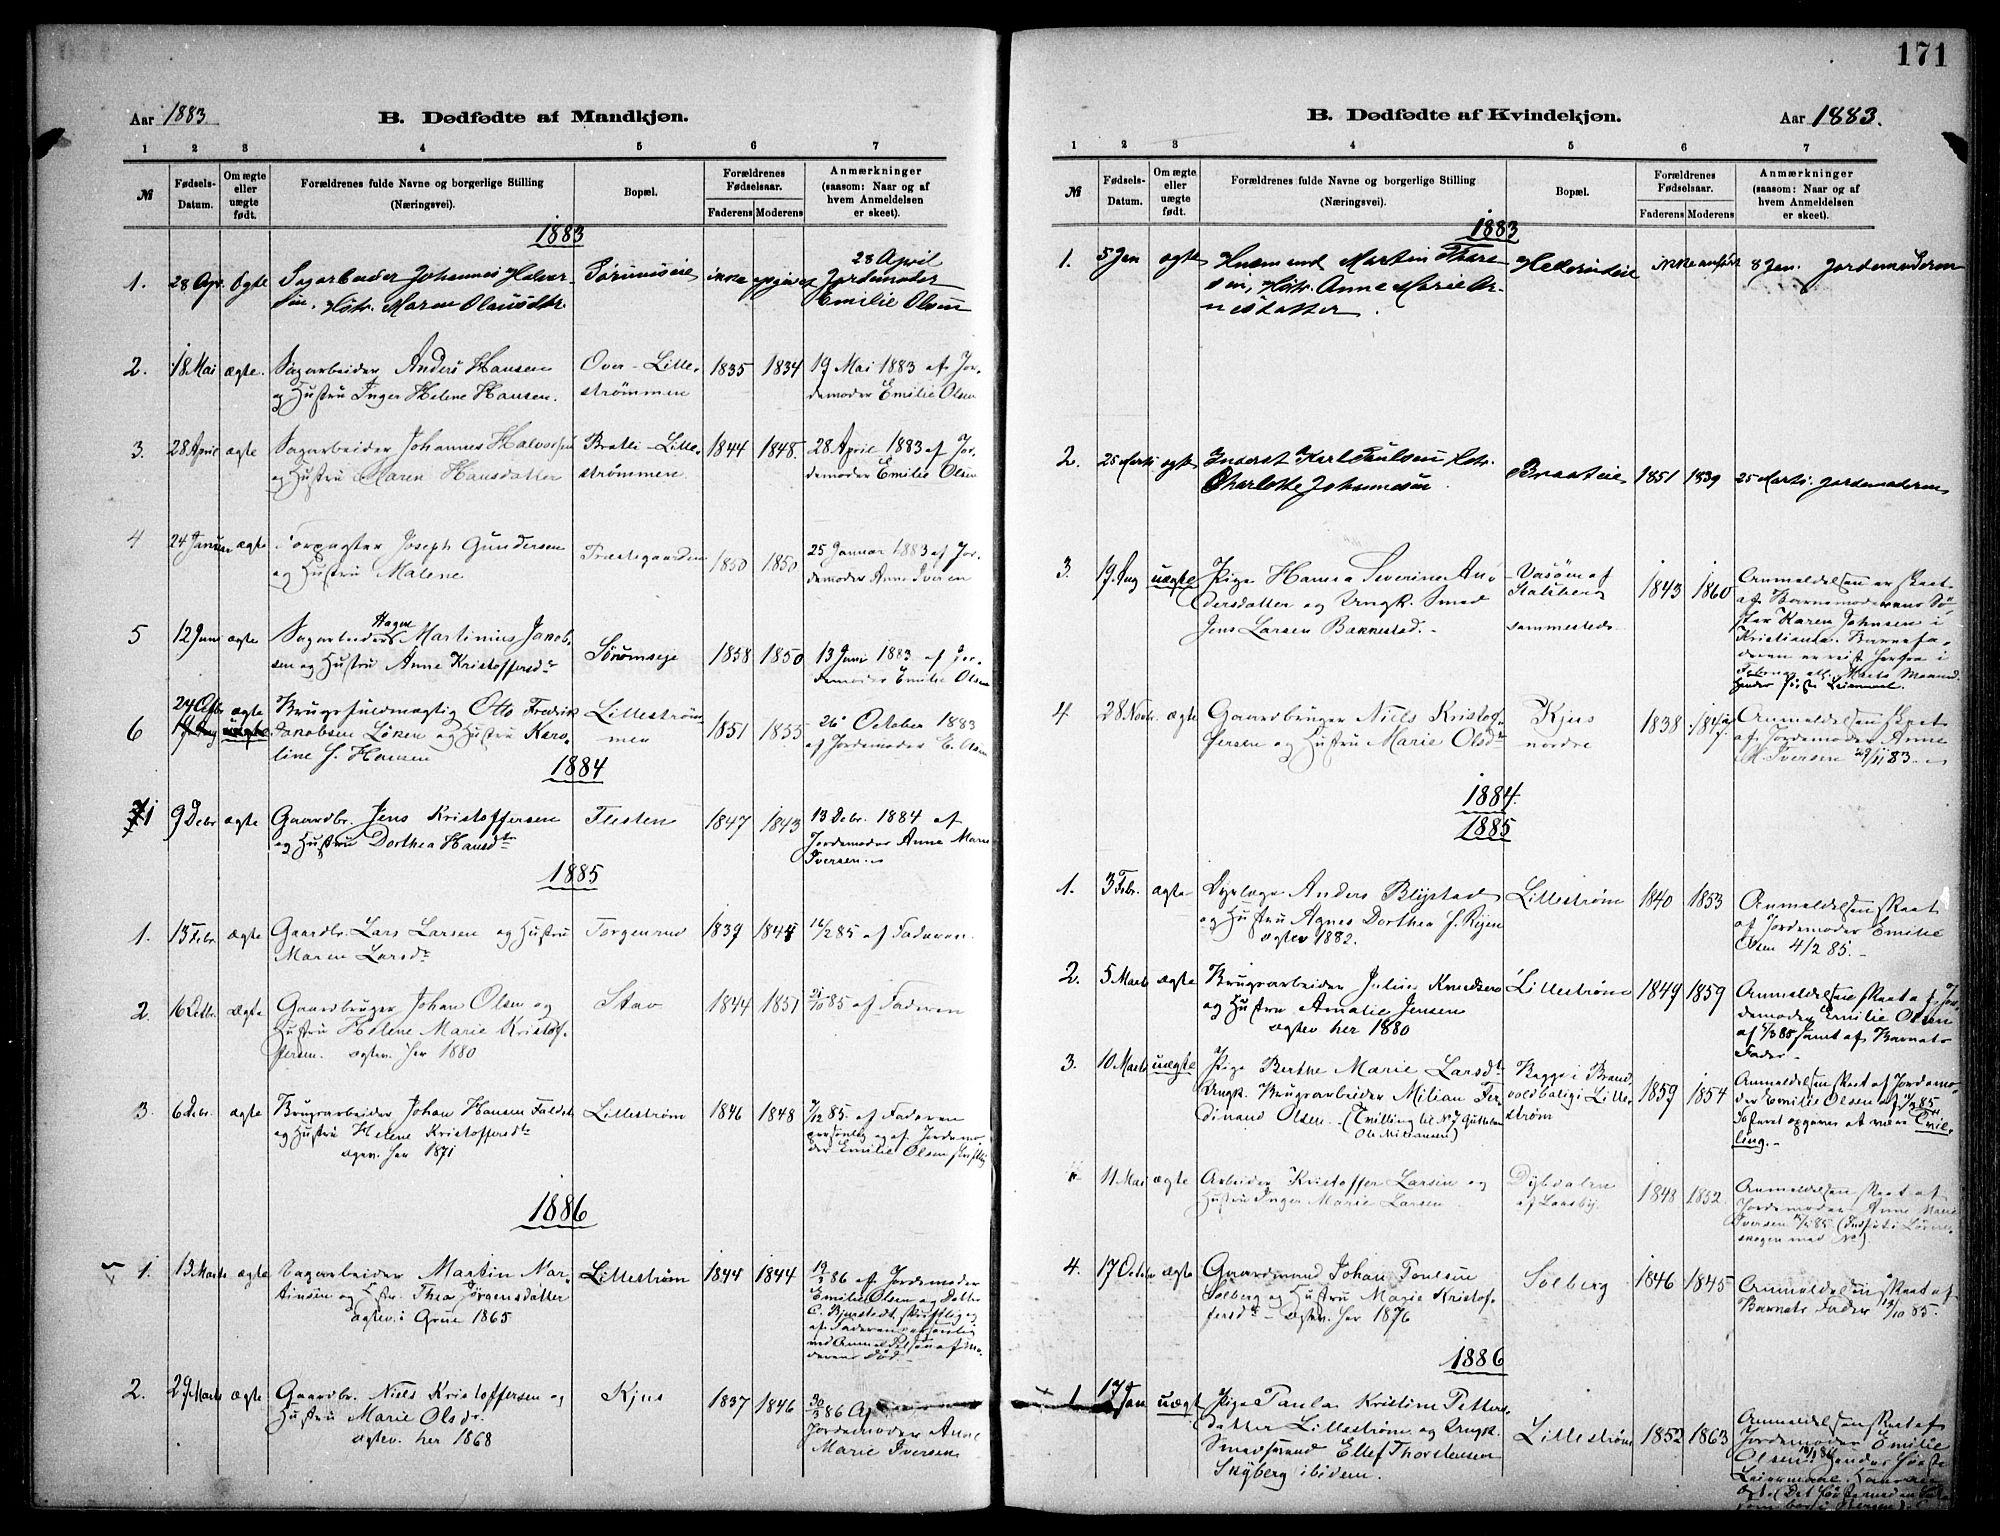 171
Aar 1883.
B. Dødfødte af Mandkjøn.
1 2 3 4 5 6 7
№
Fødsels-
Datum.
Om ægte
eller
uægte
født.
Forældrenes fulde Navne og borgerlige Stilling
(Næringsvei).
Bopæl.
Forældrenes
Fødselsaar.
Faderens Moderens
Anmærkninger
(saasom: Naar og af
hvem Anmeldelsen
er skeet).
1883
1. 28 Apr. Ægte Sagarbeider Johannes Halvor-
sen, Hstr. Maren Olausdtr.
23 April
Jordemoder
Emilie Olsen
2. 18 Mai ægte. Sagarbeider Anders Hansen Over-Lille- 1835 1834 19 Mai 1883 af Jor-
og Hustru Inger Helene Hansen. strømmen demoder Emilie Olsen
3. 28 April ægte Sagarbeider Johannes Halvorsen Bratli-Lille- 1844 1848. 28 April 1883 af Jor-
og Hustru Maren Hansdatter strømmen. demoder Emilie Olsen
4 24 Januar ægte Joseph Gundersen Præstegaarden 1850 1850 25 Januar 1883 af Jor-
og Hustru Malene demoder Anne Iversen
5 12 Juni ægte Sagarbeider Martinius Jakob- Sørumseje 1858 1850 13 Juni 1883 af Jor-
sen og Hustru Anne Kristoffersdtr demoder Emilie Olsen
6 ægte Brugsfuldmægtig Otto Fredrik Lillestrøm- 1851 1855 26 October 1883
Jakobsen Løken og Hustru Karo- men af Jordemoder E. Olsen
line J. Hansen
1884
1 9 Debr ægte Gaardbr. Jens Kristoffersen Flesten 1847 1843 13 Debr. 1884 af
og Hustru Dorthea Hansdtr Jordemoder Anne Marie
Iversen.
1885
1. 13 Febr. ægte Gaardbr. Lars Larsen og Hustru Torgerrud 1839 1844 16/2 85 af Faderen.
Maren Larsdtr
2. 16 Octbr. ægte Gaardbruger Johan Olsen og Stav 1844 1851 af Faderen
Hustru Helene Marie Kristof-
fersen. ægtev. her 1880
3. 6 Debr. ægte Brugsarbeider Johan Hansen Faldet Lillestrøm 1846 1848 7/12 85 af Faderen
og Hustru Helene Kristoffersdtr personlig og af Jordemo-
ægtev. her 1871 der Emilie Olsen skriftlig
1886
1. 13 Marts ægte Sagarbeider Martin Mar- Lillestrøm 1844 1844 19/3 86 af Jordemoder
tinsen og Hstr. Thea Jørgensdatter Emilie Olsen og Doktor
ægtev. i Grue 1865 C. Bjørnstedt skriftlig og
af Faderen personlig
ved Anmeldelsen af Mo-
derens Død.
2. 29 Marts ægte Gaardbr. Niels Kristoffersen og Kjus 1837 1846 30/3 86 Af
Hustru Marie Olsdtr. Jordemoder Anne
ægtev. her 1868 Marie Iversen
B. Dødfødte af Kvindekjøn.
Aar 1883.
1 2 3 4 5 6 7
№
Fødsels-
Datum.
Om ægte
eller
uægte
født.
Forældrenes fulde Navne og borgerlige Stilling
(Næringsvei).
Bopæl.
Forældrenes
Fødselsaar.
Faderens Moderens
Anmærkninger
(saasom: Naar og af
hvem Anmeldelsen
er skeet).
1883
1. 5 Jan ægte Husmand Martin Thore- ikke anført 8 Jan. Jordemoderen
sen, Hstr. Anne Marie Ar-
nesdatter.
2. 25 Marts ægte Inderst Karl Paulsen Hstr. Braateie 1851 1839 25 Marts. Jordemoderen
Charlotte Johannesen.
3. 19 Aug uægte Pige Hansa Severine An- 1843 1860 Anmeldelsen er skeet
dersdatter og Ungk. Smed Stalsberg af Barnemoderens Sø-
Jens Larsen Bakkestad. sammesteds. ster Karen Johnsen i
Kristiania. Barnefa-
deren er reist herfra i
4 28 Novbr. ægte Gaardbruger Niels Kristof- Kjus 1838 Anmeldelsen skeet
fersen og Hustru Marie Olsdtr nordre af Jordemoder Anne
M. Iversen 29/11 83.
1884.
1885
1. 3 Febr. ægte Dyrlæge Anders Blystad Lillestrøm 1840 1853 Anmeldelsen skeet
og Hustru Agnes Dorthea J. Ryen af Jordemoder Emilie
ægtev 1882. Olsen 4/2 85.
2. 5 Marts ægte Brugsarbeider Julius Knudsen Lillestrøm 1849 1859 Anmeldelsen skeet af Jor-
og Hustru Amalie Jensen demoder Emilie Olsen
ægtev her 1880 af 6/3 85 samt af Barnets
Fader.
3. 10 Marts uægte Pige Berthe Marie Larsdtr Bagge i Brand- 1859 1854 Anmeldelsen skeet af Jordemo-
Ungk. Brugsarbeider Milian Fer- voldbolig i Lille- der Emilie Olsen af
dinand Olsen. (Tvilling til N7 Guttebarn strøm Fosteret opgives at være Tvil-
Ole Miliansen) ling.
11 Mai ægte Arbeider Kristoffer Larsen og Dybdalen 1848 1852 Anmeldelsen skeet af
Hustru Inger Marie Larsen af Lørsby. Jordemoder Anne Marie
Iversen
4. 17 Octbr ægte Gaardmand Johan Poulsen Solberg 1846 1845 Anmeldelsen skeet af
Solberg og Hustru Marie Kristof- Barnets Fader 19/10 85.
fersdtr - ægtev. her 1876
1886
1 17 Jan uægte Pige Paula Kristine Petters- Lillestrøm 1852 1863 Anmeldelsen skeet af
datter Lillestrøm og Ungk. Jordemoder Emilie
Smedsvend Ellef Thorstensen Olsen
Skyberg ibidem. Leiermaal.